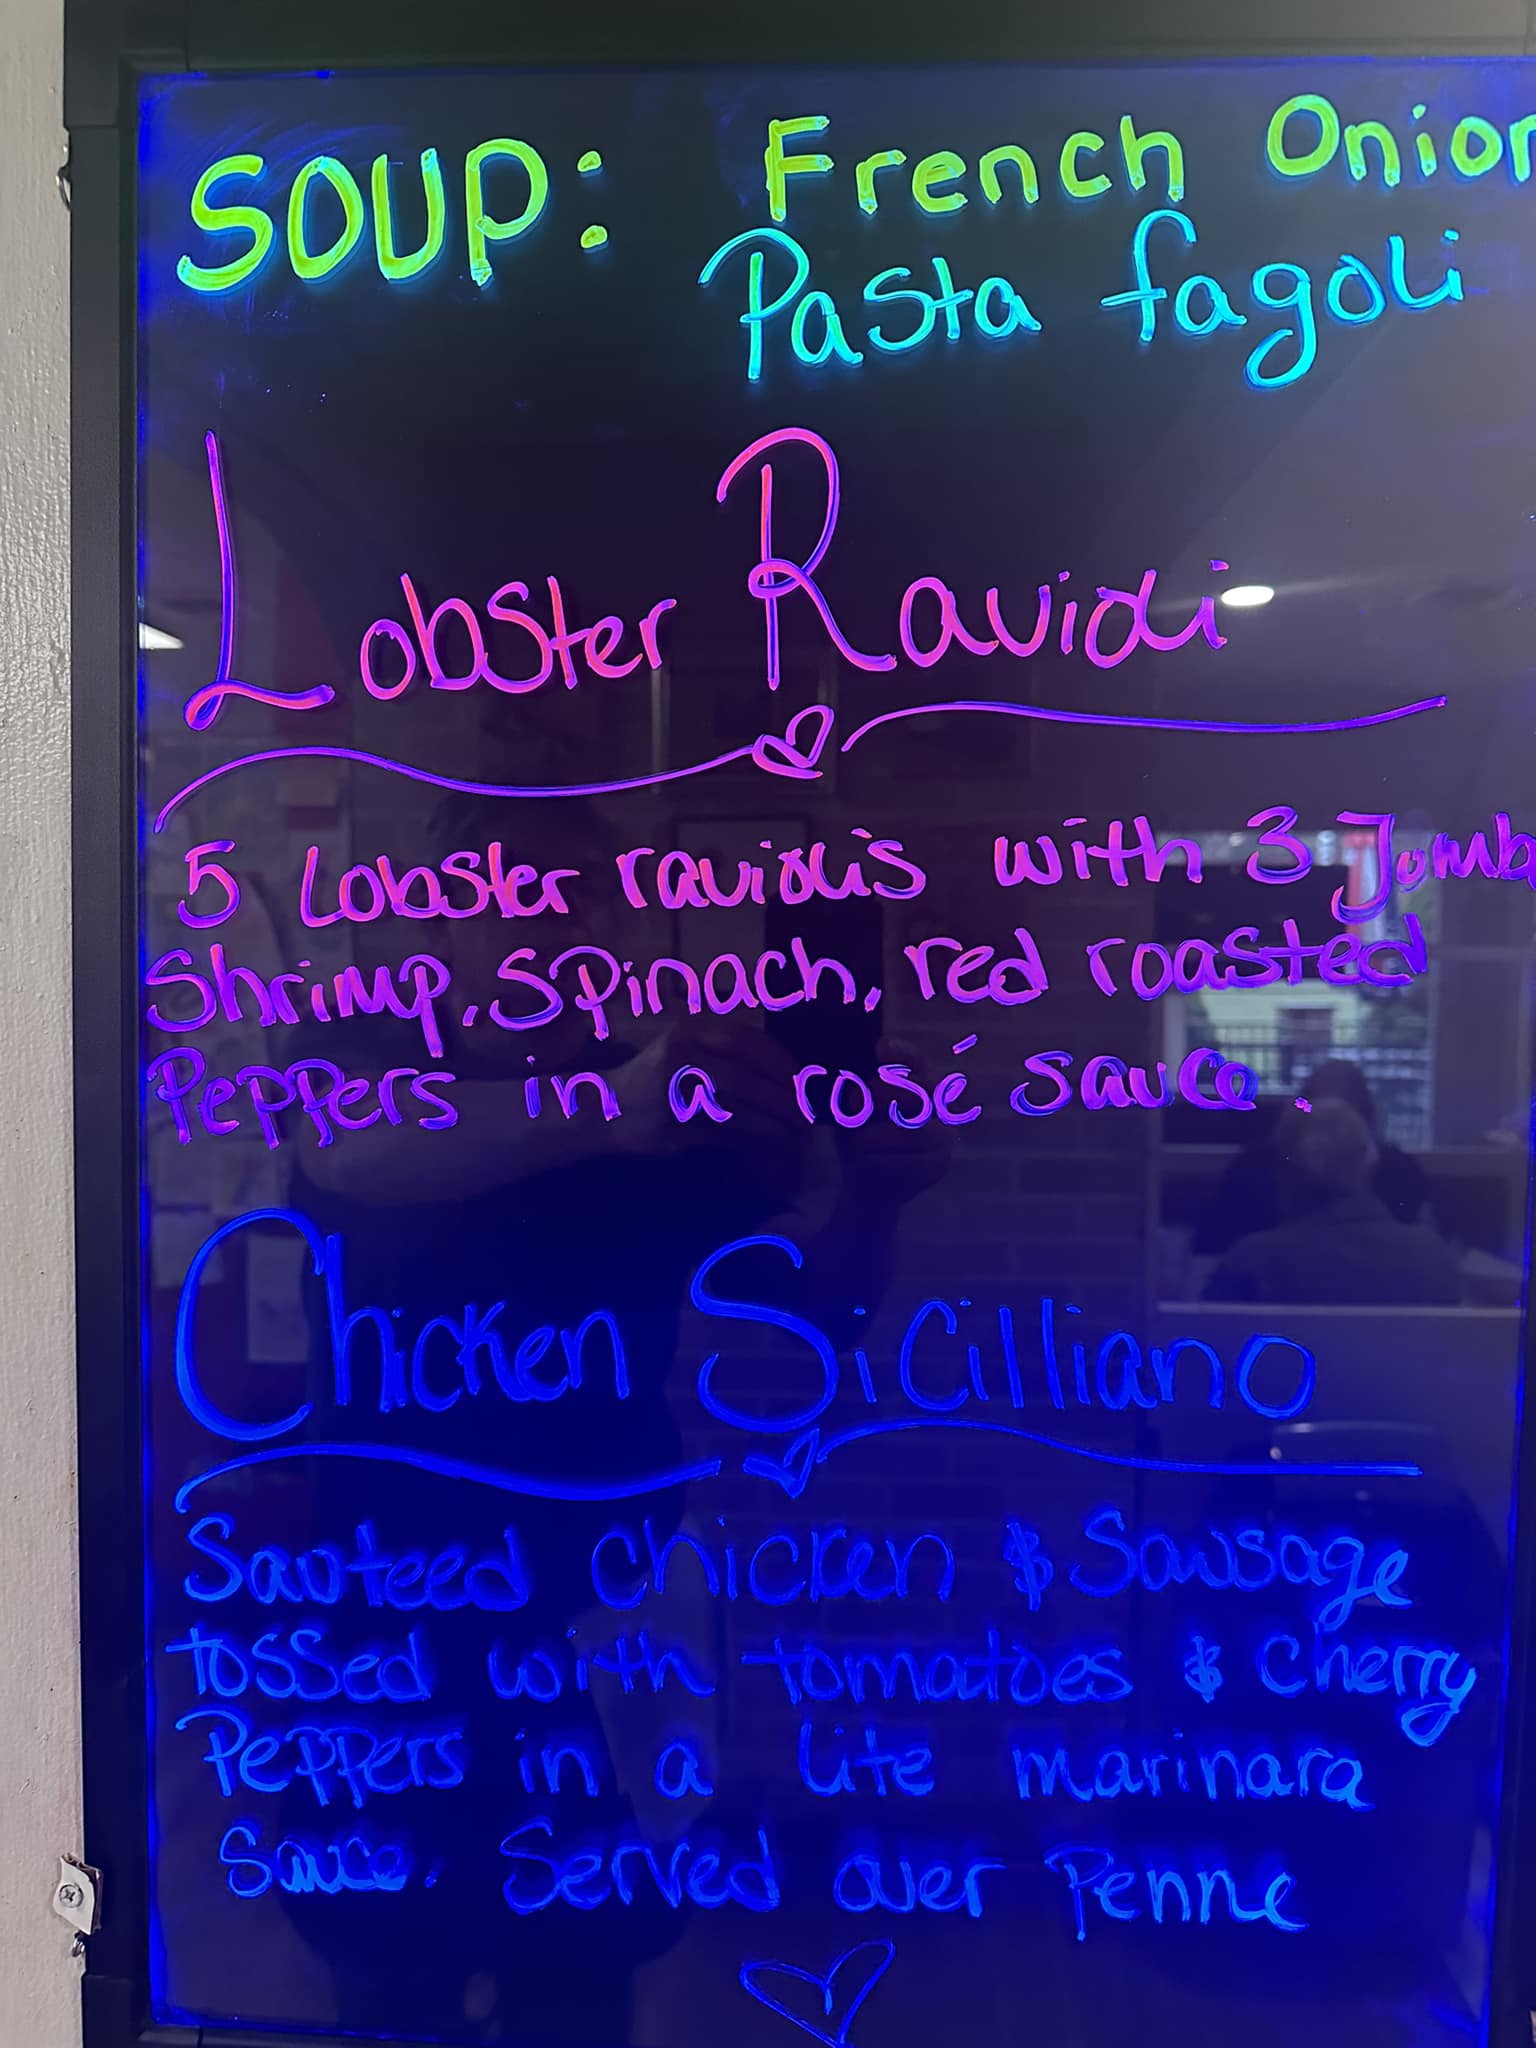 SOUP: French Onion
Pasta fagoli
Lobster Ravioli
5 Lobster ravioli's with 3 Jomb
Shrimp, Spinach, red roasted
Peppers in a rosé sauce.
Chicken Sicilliano
Sauteed chicken & Sausage
tossed with tomatoes & Cherry
Peppers in a lite marinara
Sauce. Served over Penne